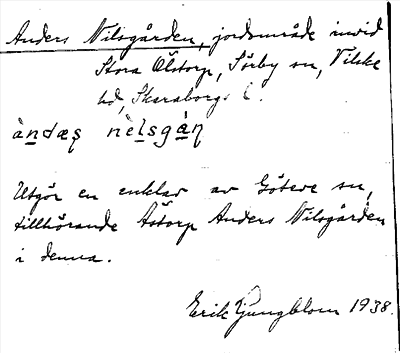 Anders Nilsgården, jordområde invid
Stora Ölstorp, Sörby sn, Vilske
hd, Skaraborgs l.
àndæș nèlsgàṇ
Utgör en enklav av Göteve sn,
tillhörande Åstorp Anders Nilsgården
i denna.
Erik Ljungblom 1938.